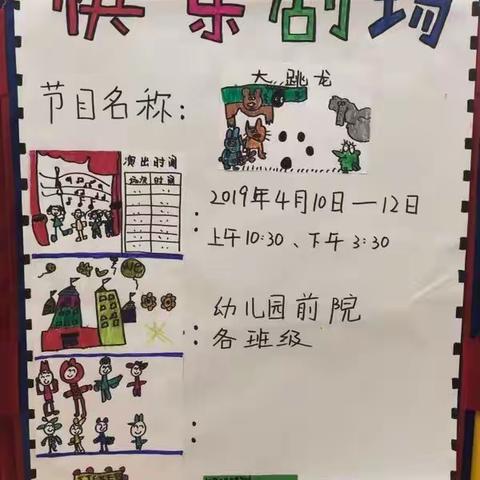 快乐剧场
大跳龙
节目名称：
演出时间
场次 时间
2019年4月10日—12日
上午10:30、下午3:30
幼儿园前院
各班级